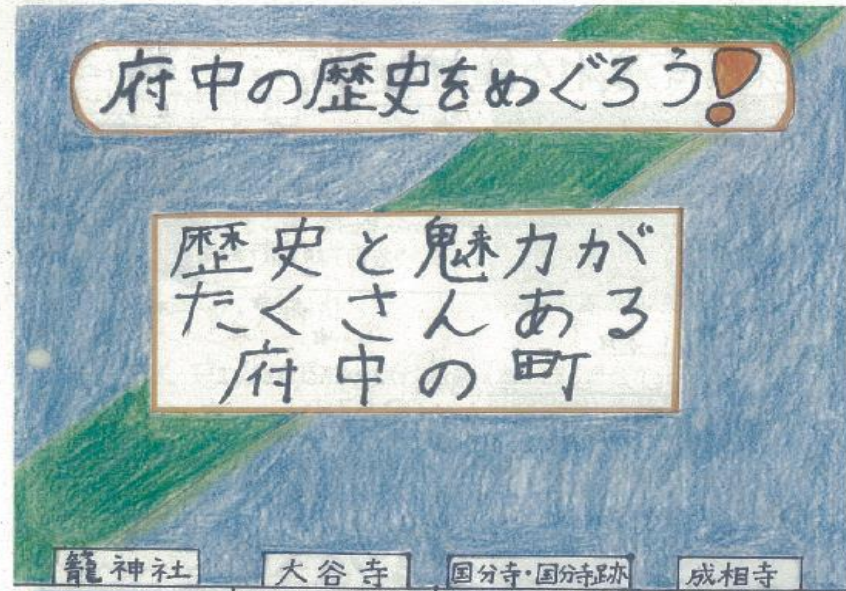 府中の歴史をめぐろう!
歴史と魅力が
たくさんある
府中の町
籠神社
大谷寺
国分寺・国分寺跡
成相寺